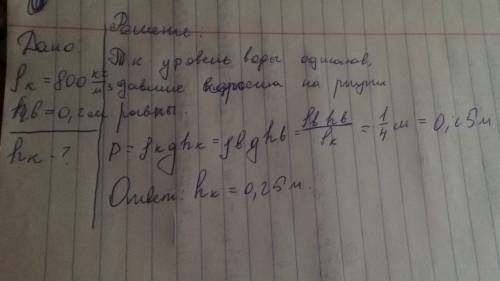 Дано:
ρк = 800 кг/м³
hв = 0,2 м
hк - ?
Решение:
Т.к уровень воды одинаков,
давление керосина на ртути
равны.
P = ρкghк = ρвghв = ρв hв / ρк = 1/4 м = 0,25 м
Ответ: hк = 0,25 м.